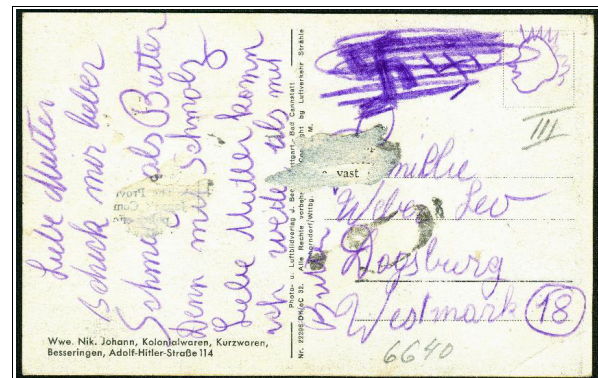 Liebe Mutter
schick mir lieber
Schmalz als Butter
denn mit Schmolz
Liebe Mutter komm
ich weiter als mit
Butter
Wwe. Nik. Johann, Kolonialwaren, Kurzwaren,
Besseringen, Adolf-Hitler-Straße 114
Photo- u. Luftbildverlag J. Bad Cannstatt
ight by Luftverkehr Strähle
Nr. 22206 Alle Rechte vorbeh
orndorf/Wttbg.
III
vast
Weber Leo
Dogsburg
Westmark 18
6640